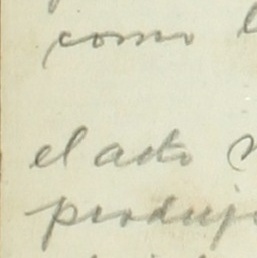 como
el acto
produj